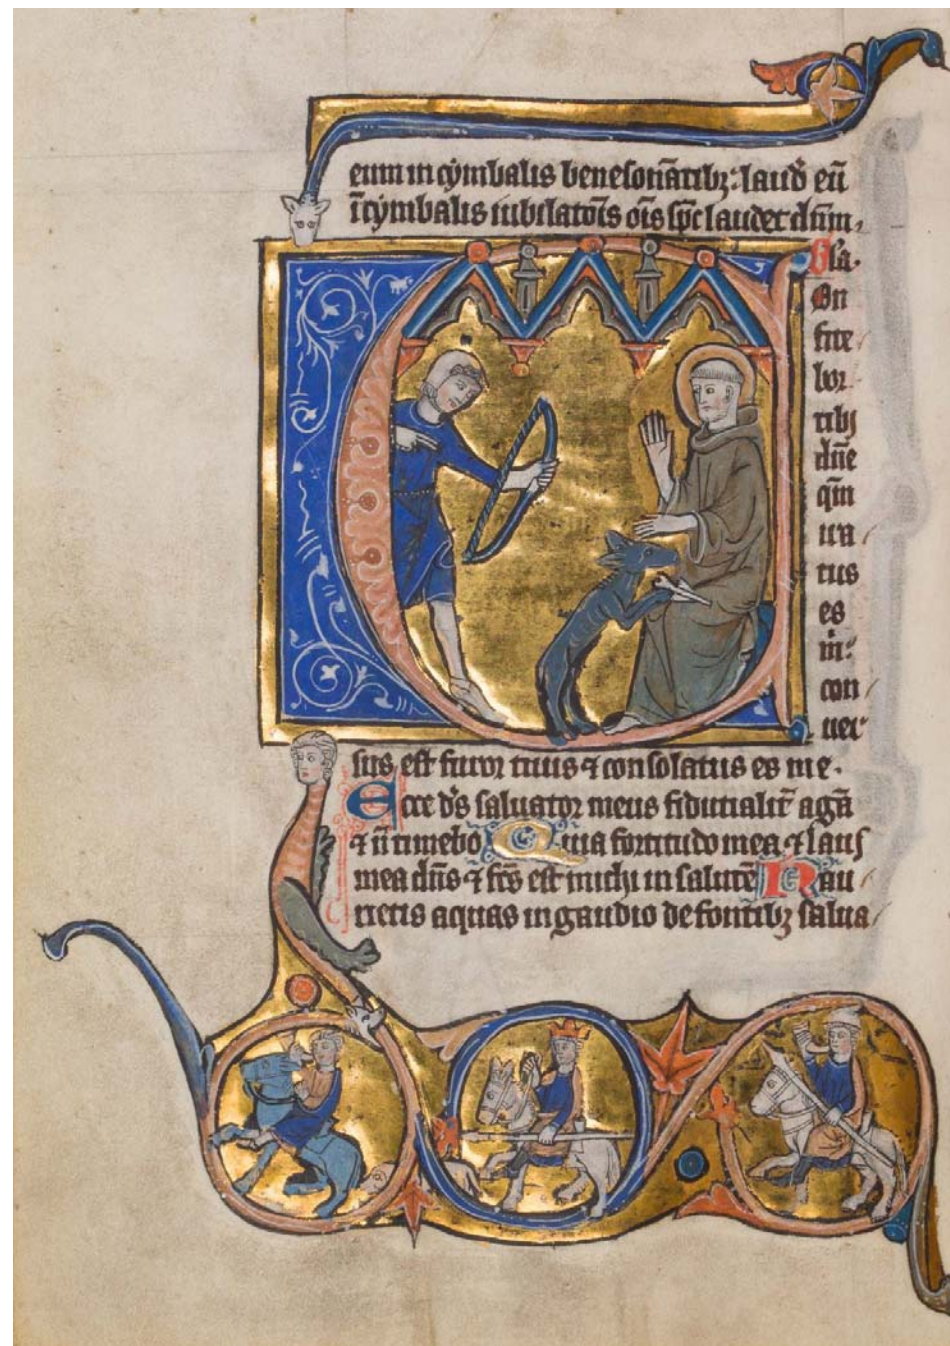 eum in cymbalis benesonātibꝫ: laud̄ eū
ī cymbalis iubilatōīs oīs sp̄c laudet dnm̄.
Gła.
Con
fite
bor
tibj
dn̄e
qm̄
ira
tus
es
m̄:
con
uer
sus est furor tuus ⁊ consolatus es me.
Ecce d̄s saluator meus fidutialit̄ agā
⁊ n̄ timebo Quia fortitudo mea ⁊ laus
mea dn̄s ⁊ fc̄s est michi in salutē Hau
rietis aquas in gaudio de fontibꝫ salua